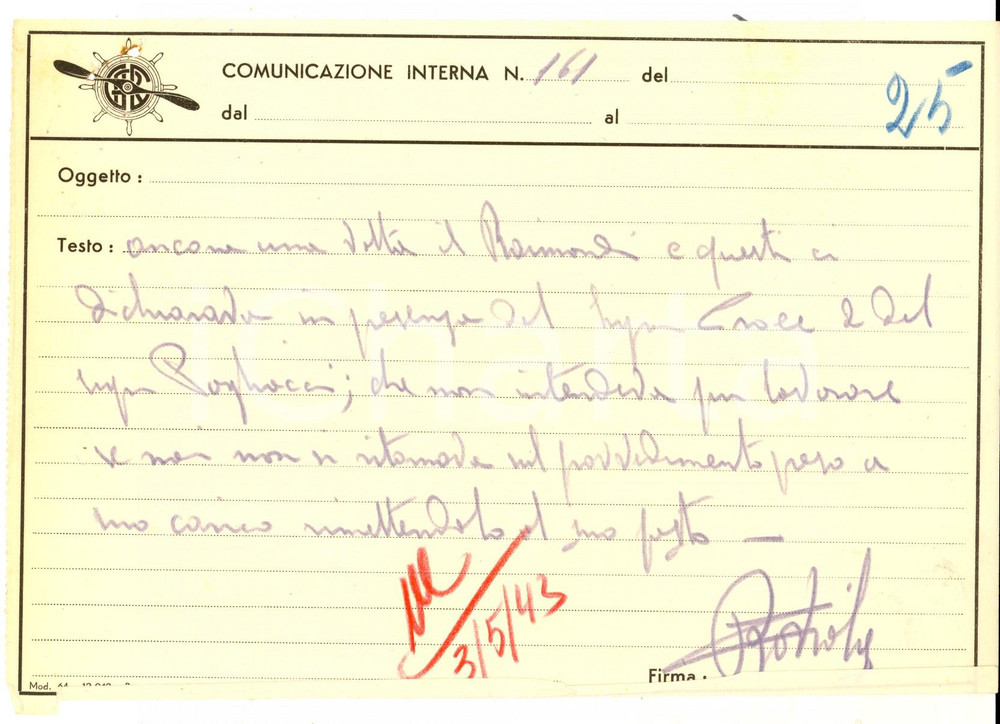 COMUNICAZIONE INTERNA N. 161 del
25
dal al
Oggetto :
Testo : ancora una volta il Raimondi e questi ci
dichiarava in presenza del Sign Croce e del
sign Pogliacci; che non intendeva più lavorare
se noi non si ritornava sul provvedimento preso a
suo carico rimettendolo al suo posto —
3/5/43
Firma :
Mod.